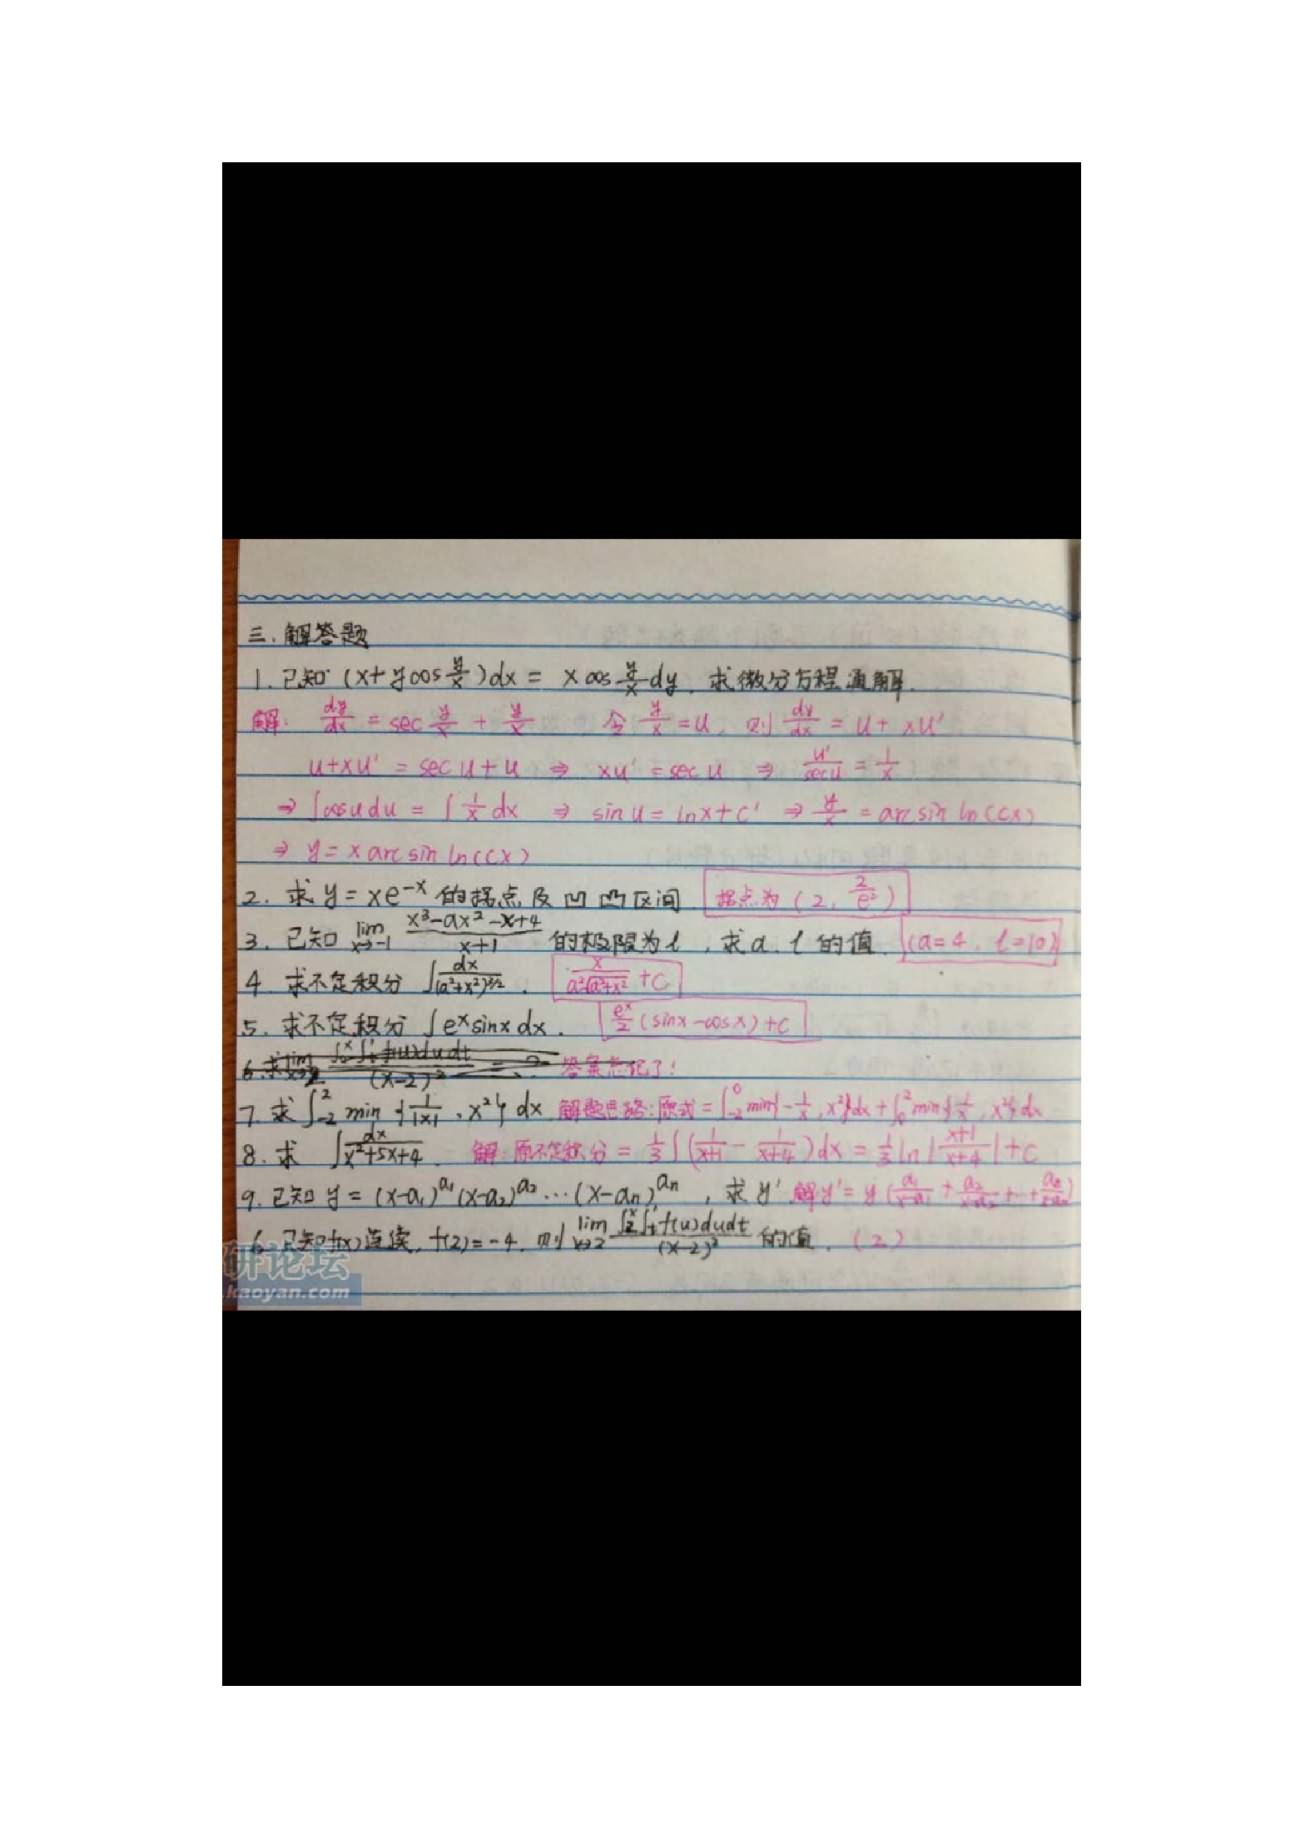 三.解答题
1.已知 (x+ycos y/x)dx = x cos y/x dy,求微分方程通解.
解: dy/dx = sec y/x + y/x 令 y/x = u, 则 dy/dx = u + xu'
u+xu' = sec u + u ⇒ xu' = sec u ⇒ u'/sec u = 1/x
⇒ ∫cosu du = ∫ 1/x dx ⇒ sin u = lnx + c' ⇒ y/x = arc sin ln(cx)
⇒ y = x arc sin ln(cx)
2. 求 y = xe^{-x} 的拐点及凹凸区间 拐点为 (2, 2/e²)
3. 已知 lim_{x→-1} (x³-ax²-x+4)/(x+1) 的极限为 l,求 a.l 的值. (a=4, l=10)
4. 求不定积分 ∫ dx/(a²+x²)^{3/2}. x/(a²√(a²+x²)) + C
5. 求不定积分 ∫e^x sinx dx. e^x/2 (sinx-cosx)+C
6.求 答案忘记了!
7. 求 ∫_{-2}^{2} min{1/|x|, x²} dx 解题思路:原式 = ∫_{-2}^{0} min{-1/x, x²}dx + ∫_{0}^{2} min{1/x, x²}dx
8. 求 ∫ dx/(x²+5x+4). 解:原不定积分 = 1/3 ∫(1/(x+1) - 1/(x+4))dx = 1/3 ln|(x+1)/(x+4)| + C
9. 已知 y = (x-a₁)^{a₁}(x-a₂)^{a₂}…(x-aₙ)^{aₙ}, 求 y' 解y' = y(a₁/(x-a₁) + a₂/(x-a₂) +…+ aₙ/(x-aₙ))
6.已知f(x)连续, f(2)=-4, 则 lim_{x→2} ∫_2^x∫_t^2 f(u)dudt/(x-2)² 的值. (2)
研论坛
.kaoyan.com